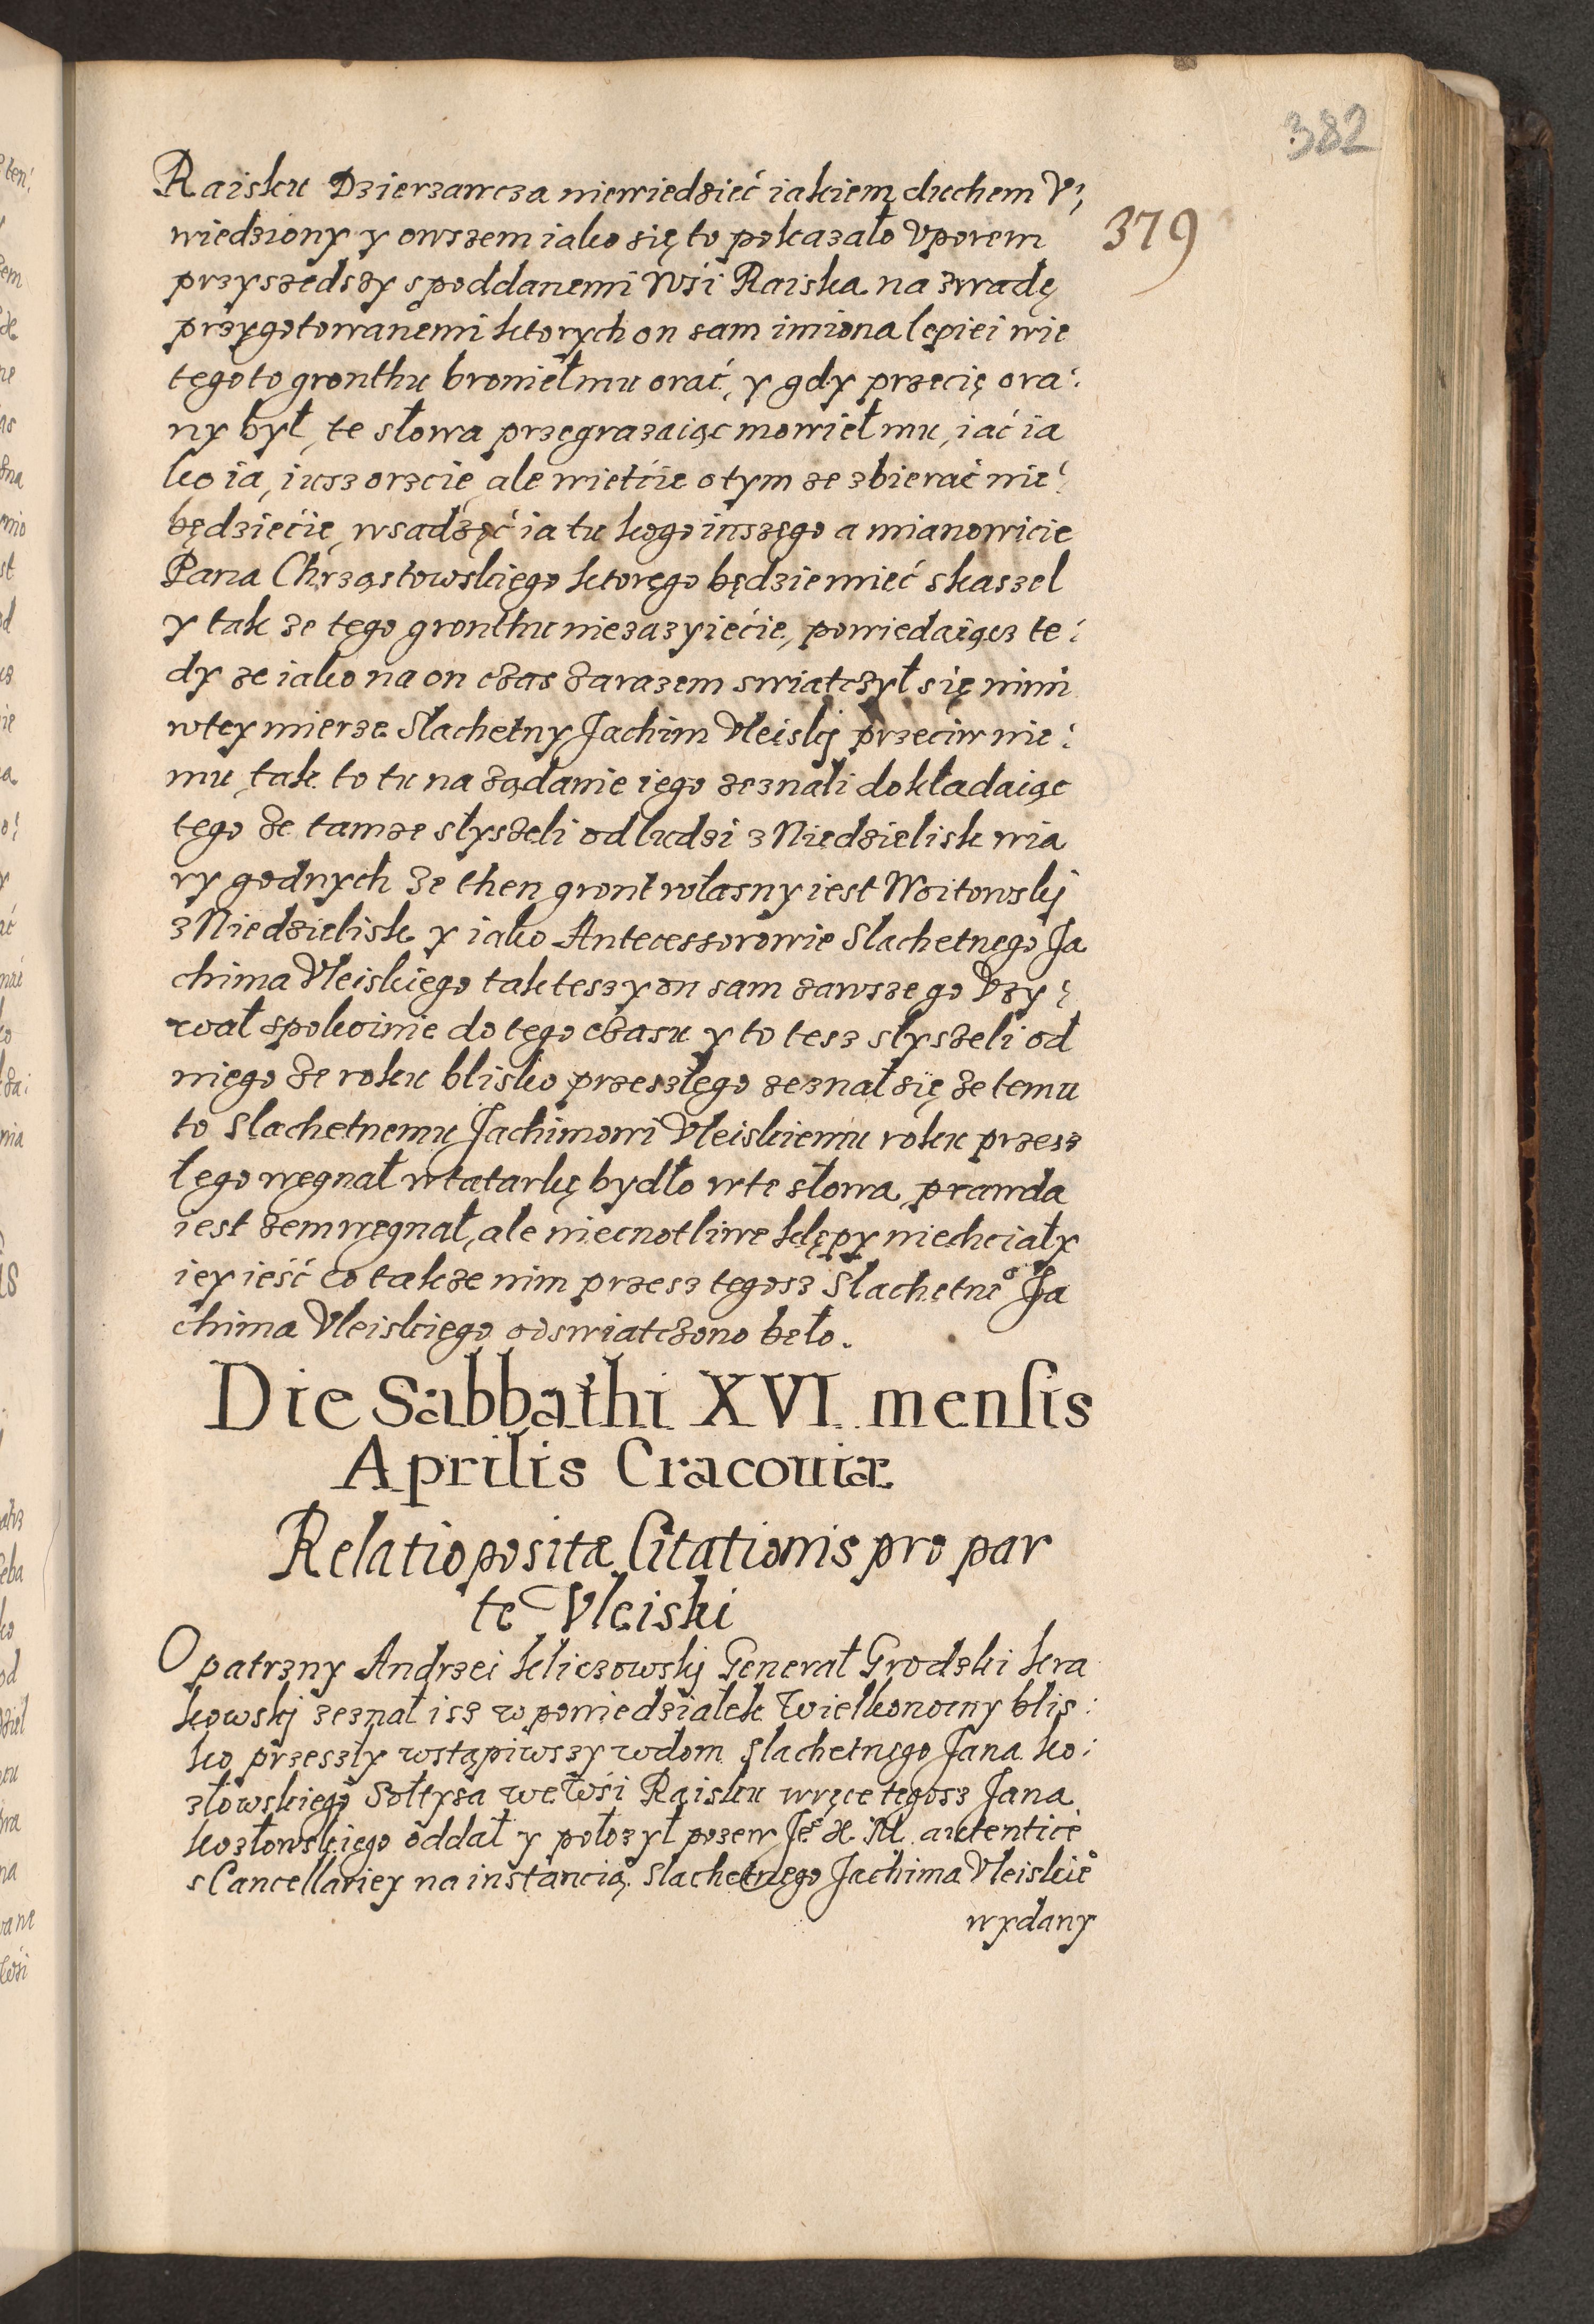 382
379
Raisku Dzierzawcza niewiedzieć iakiem duchem V:
wiedziony y owszem iako się to pokazało Vporem
przyszedszy spoddanemi Wśi Raiska na zwadę
przygotowanemi ktorych on sam imiona lepiei wie
tęgoto gronthu broniełmu orać, y gdy przecię ora:
ny był, te słowa przegrazaiąc mowieł mu, iać ia
ko ia, iusz orzcie ale wietćie otym ze zbierać nie:
będziećie, wsadzęć ia tu kogo inszęgo a mianowicie
Pana Chrząstowskięgo ktoręgo będziemieć skaszel
y tak ze tęgo gronthu niezazyiećie, powiedaiącz te:
dy ze iako na on czas zarazem swiatczył się nimi
wtey mierze Slachetny Jachim Vleiskj przeciw nie:
mu, tak to tu na ządanie ięgo zeznali dokładaiąc
tęgo ze tamze słyszeli od ludzi z Niedzielisk wia
ry godnych ze then gront własny iest Woitowskj
z Niedzielisk y iako Antecessorowie Slachetnęgo Ja
chima Vleiskięgo taktesz y on sam zawsze go Vzy:
wał spokoinie do tęgo czasu y to tesz słyszeli od
nięgo ze roku blisko przeszłęgo zeznał się ze temu
to Slachetnemu Jachimowi Vleiskiemu roku przesz
łęgo węgnał wtatarkę bydło wte słowa, prawda
iest zem węgnał, ale niecnotliwe klępy niechciały
iey ieść co takze nim przesz tęgosz Slachetne⁰ Ja
chima Vleiskięgo odswiatczono beło.
Die Sabbathi XVI mensis
Aprilis Cracouiæ
Relatio positæ Citationis pro par
te Vleiski
Opatrzny Andrzei Kliczowskj Generał Grodzki kra
kowskj zeznał isz w poniedziałek Wielkonocny blis:
ko przeszły wstąpiwszy wdom Slachetnęgo Jana Ko:
złowskięgo Sołtysa we Wśi Raisku wręce tęgosz Jana
Kozłowskięgo oddał y połozył pozew Je⁰ K. M. autentice
s Cancellariey na instancią Slachetnęgo Jachima Vleiskie⁰
wydany